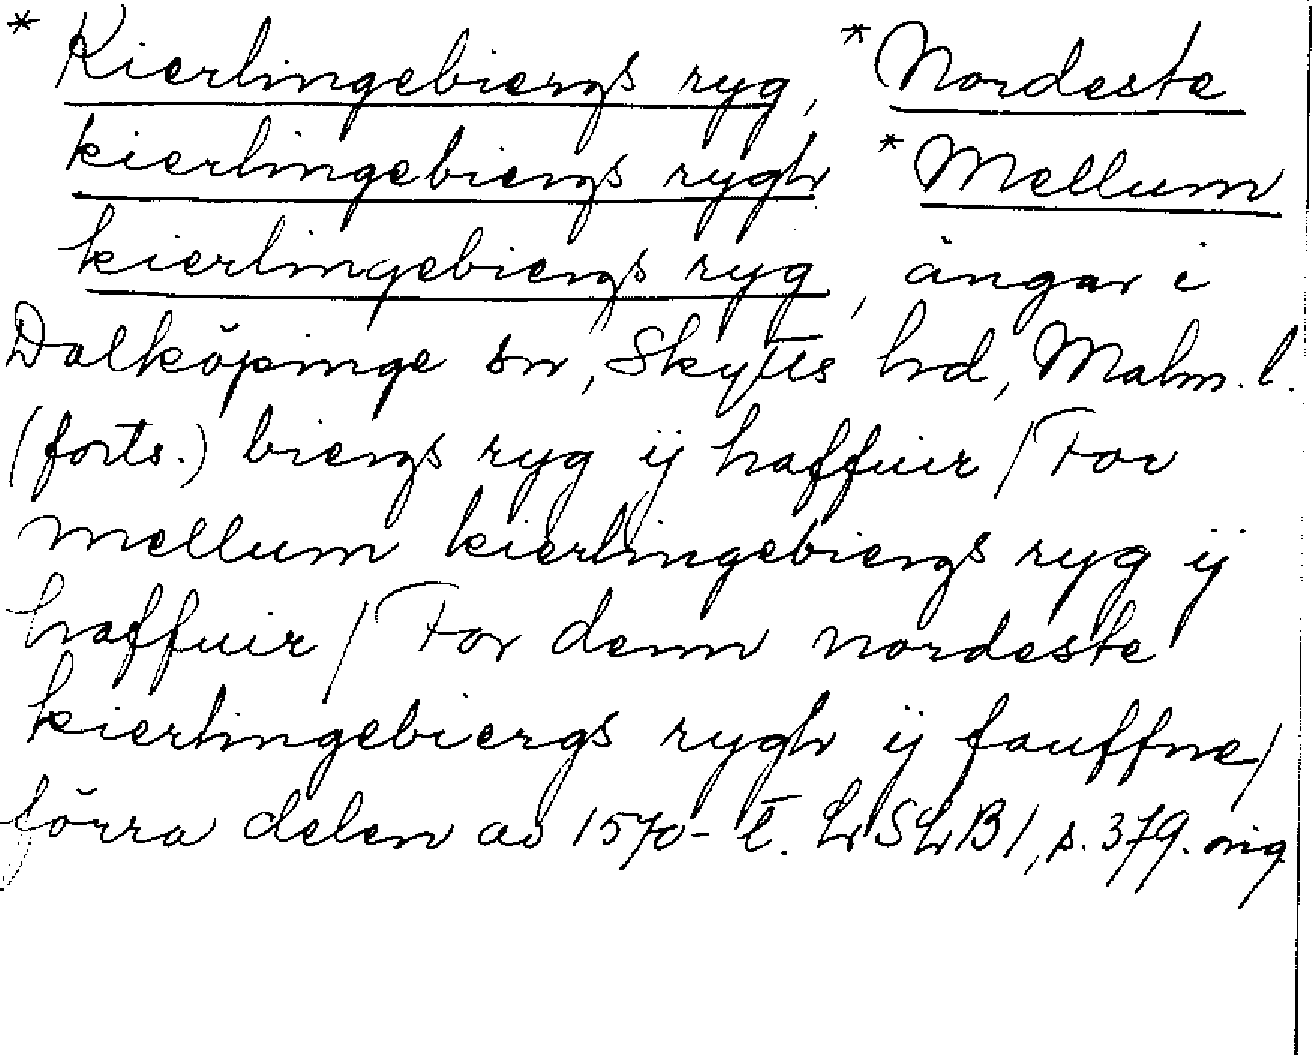 * Kierlingebiergs ryg, * Nordeste
kierlingebiergs rygh * Mellum
kierlingebiergs ryg, ängar i
Dalköpinge sn, Skytts hd, Malm. l.
(forts.) biergs ryg ij haffuir / For
mellum kierlingebiergs ryg ij
haffuir / For denn nordeste
kierlingebiergs rygh ij fauffne /
förra delen av 1570-t. LSLB1, s. 379. orig